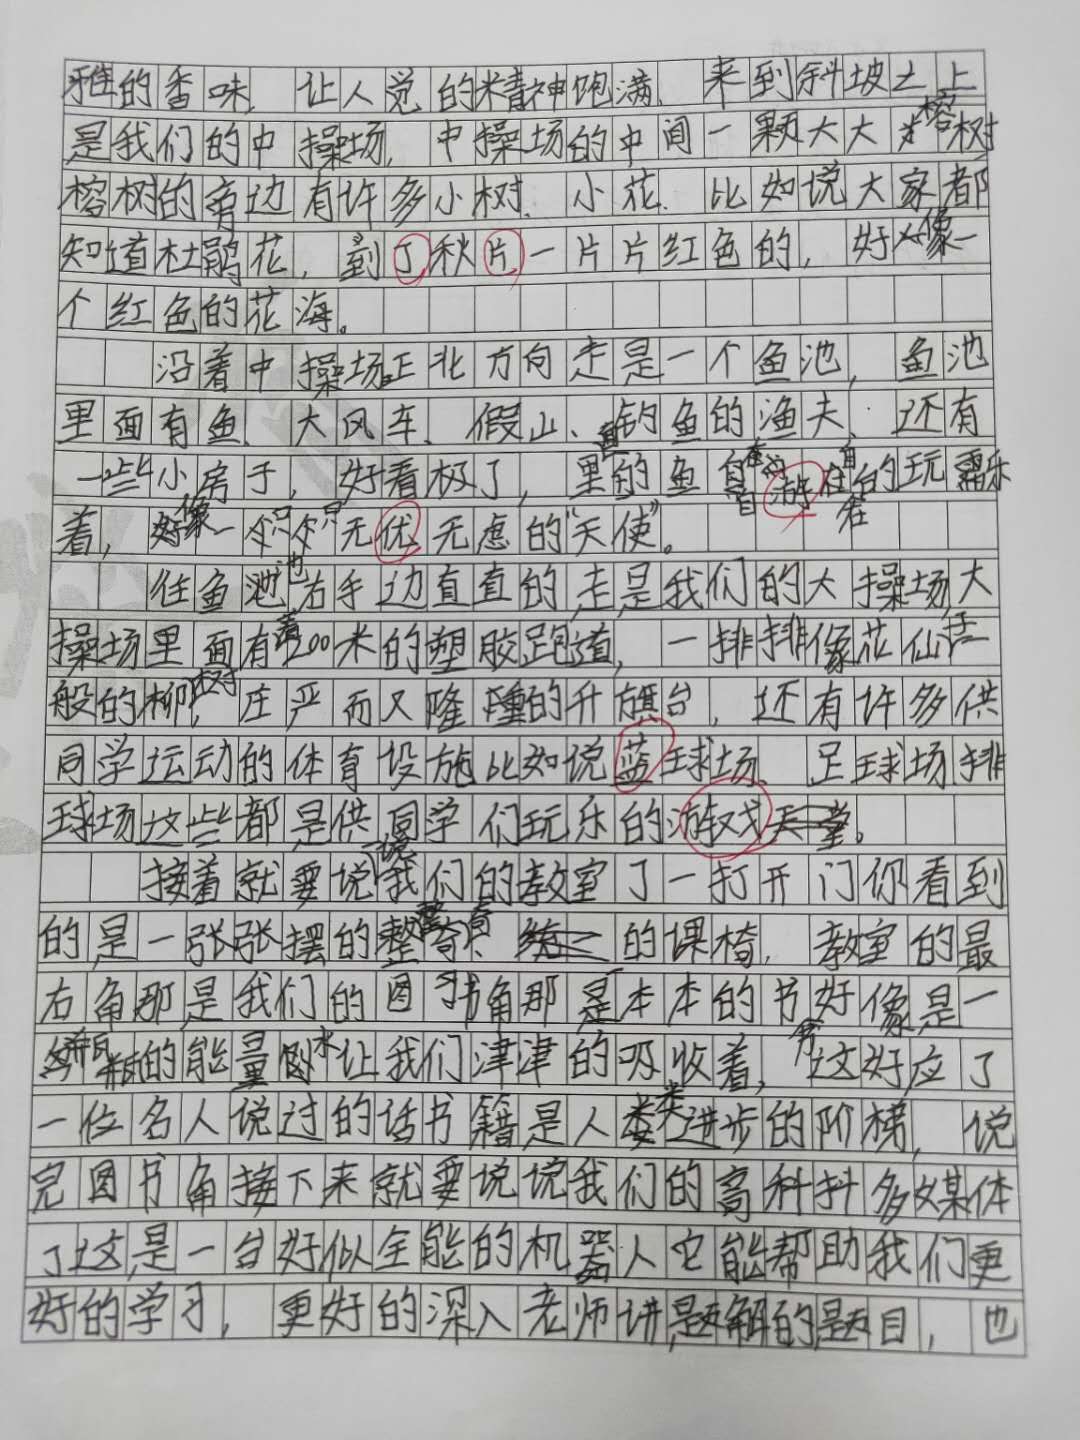 雅的香味，让人觉的精神饱满、来到斜坡之上
是我们的中操场，中操场的中间一颗大大榕树
榕树的旁边有许多小树、小花、比如说大家都
知道杜鹃花，到了秋片一片片红色的，好像一
个红色的花海。
沿着中操场正北方向走是一个鱼池，鱼池
里面有鱼、大风车、假山、钓鱼的渔夫、还有
一些小房子，好看极了，里面的鱼自由自在的玩
着，好像一只只无优无虑的“天使”。
往鱼池右手边直直的走是我们的大操场，大
操场里面有着200米的塑胶跑道，一排排像花仙子
般的柳树，庄严而又隆重的升旗台，还有许多供
同学运动的体育设施比如说蓝球场、足球场排
球场这些都是供同学们玩乐的游戏天堂。
接着就要说说我们的教室了一打开门你看到
的是一张张摆的整齐的课椅，教室的最
右角那是我们的图书角那是一本本的书好像是一
瓶瓶的能量水让我们津津的吸收着，这好应了
一位名人说过的话书籍是人类进步的阶梯，说
完图书角接下来就要说说我们的高科抖多媒体
了这是一台好似全能的机器人它能帮助我们更
好的学习，更好的深入老师讲题解的题目，也